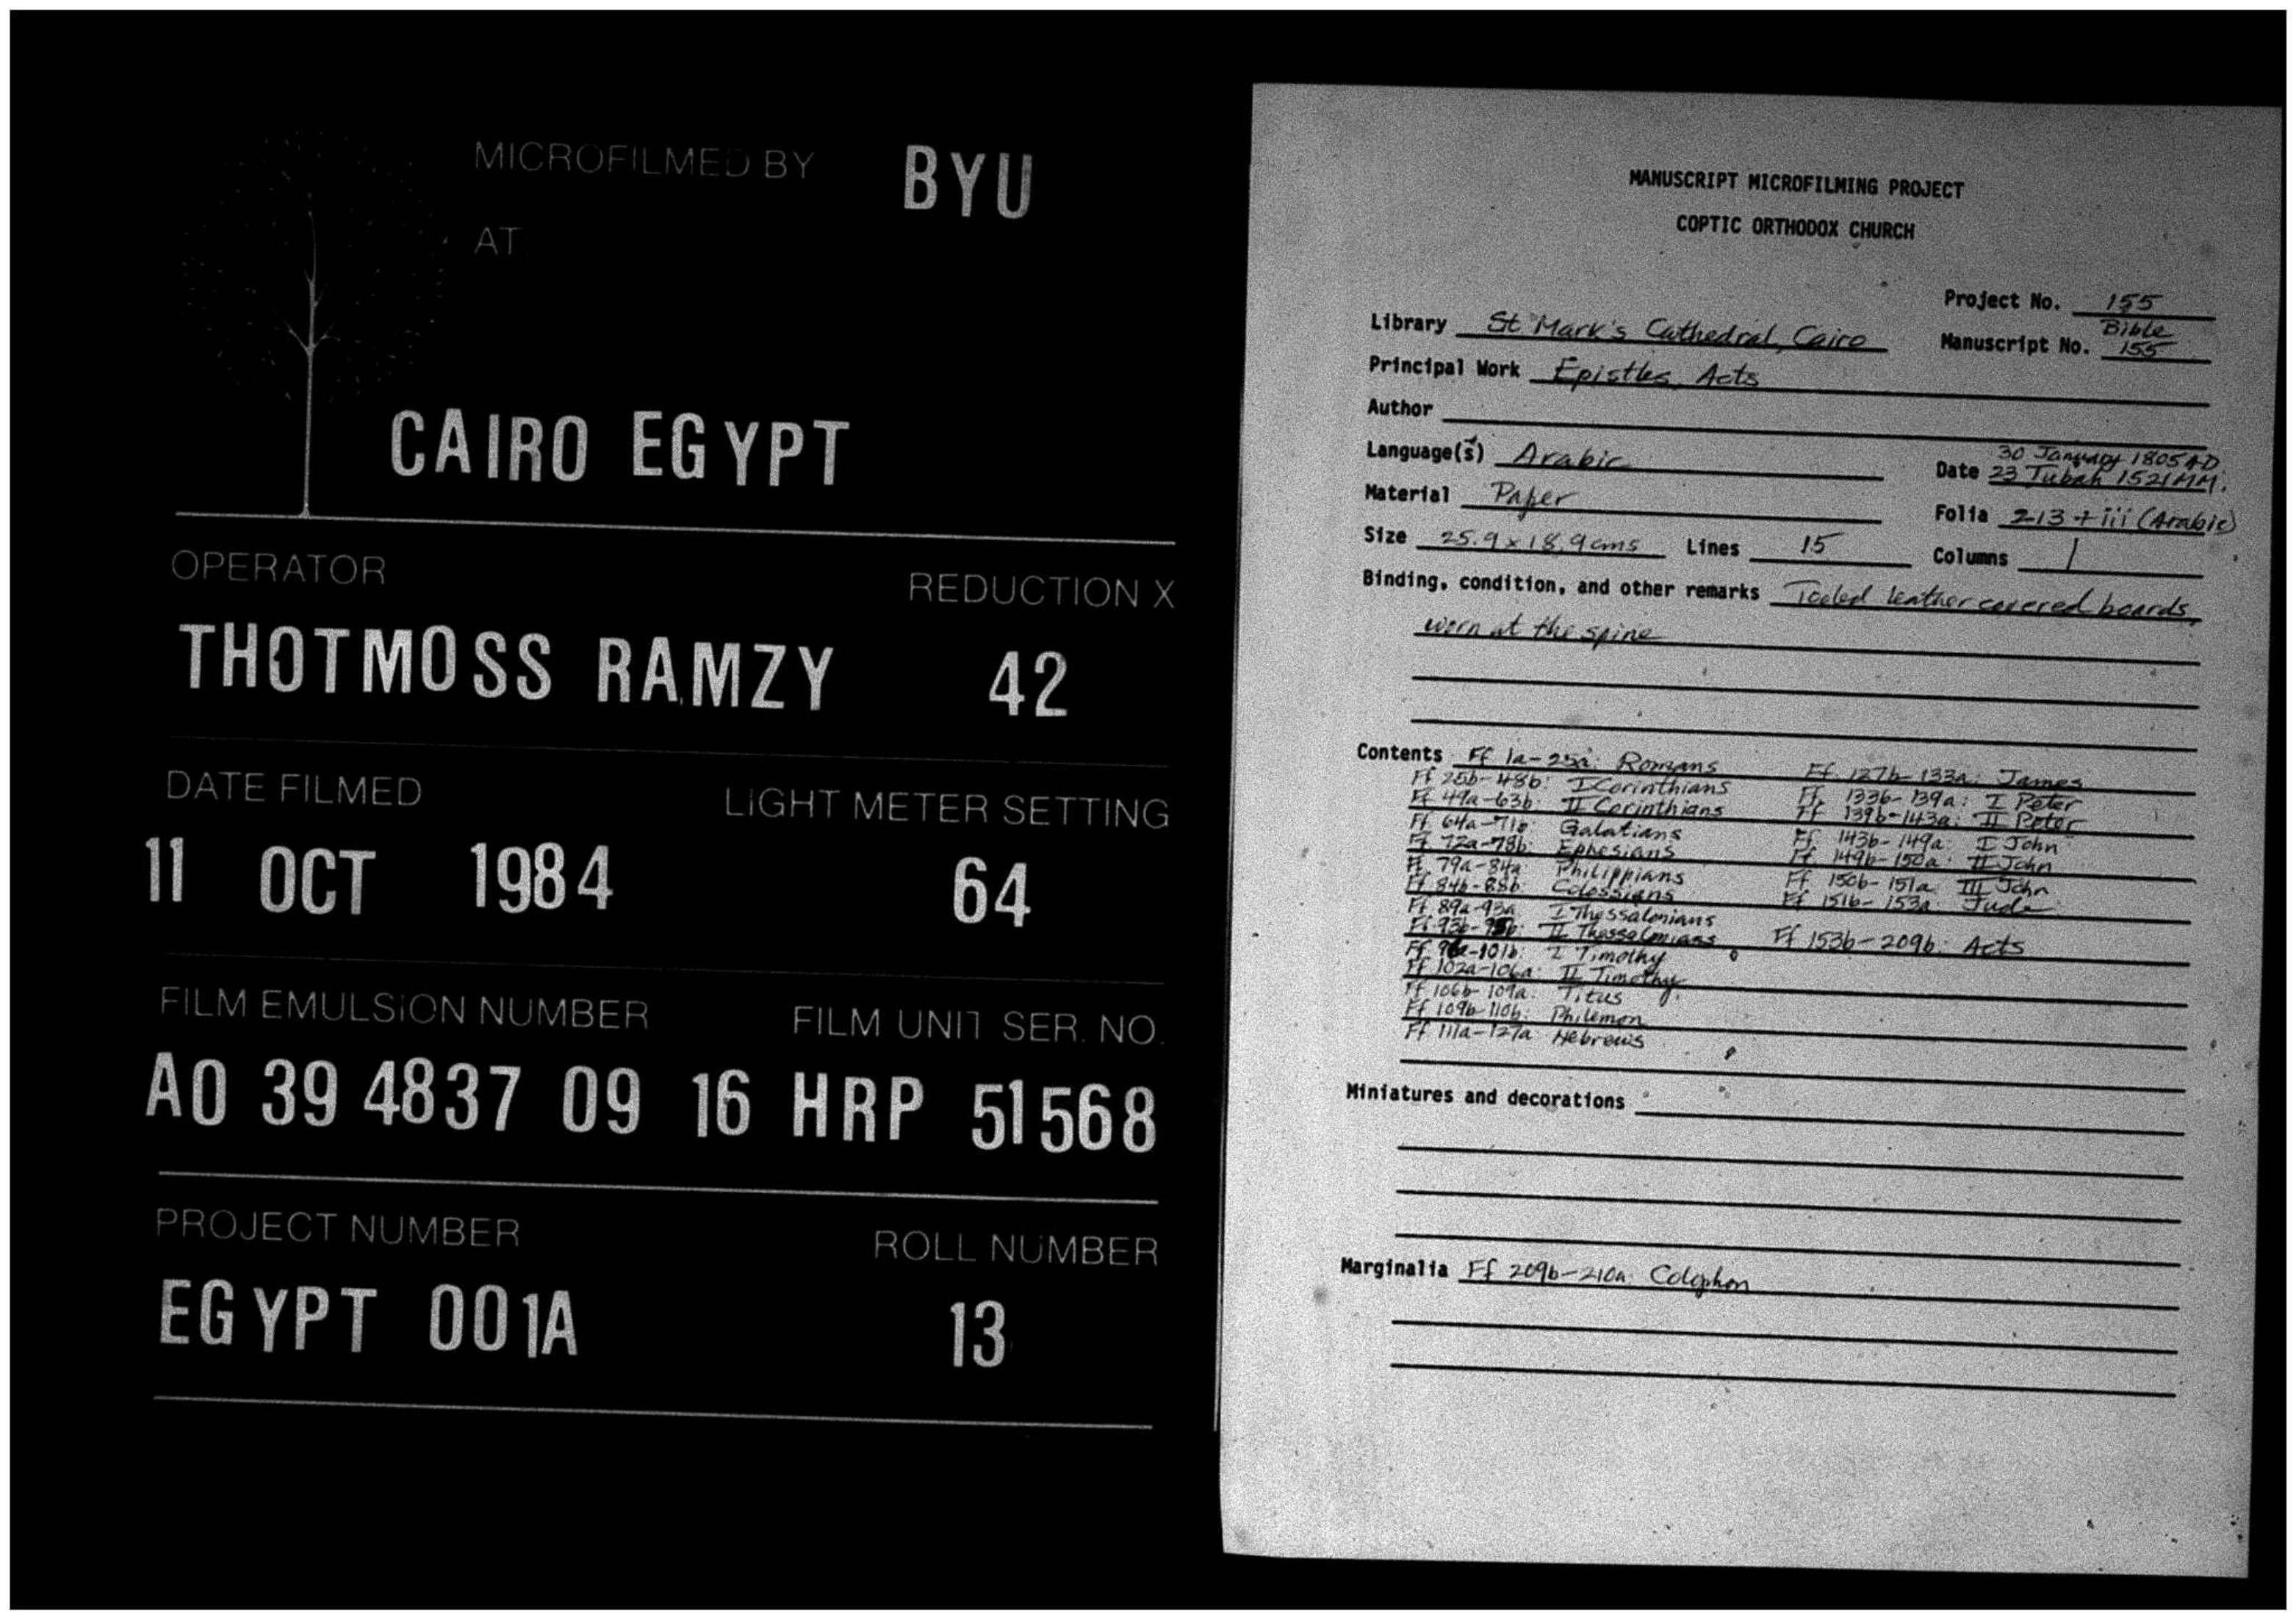 MICROFILMED BY BYU
AT
CAIRO EGYPT
OPERATOR REDUCTION X
THOTMOSS RAMZY 42
DATE FILMED LIGHT METER SETTING
11 OCT 1984 64
FILM EMULSION NUMBER FILM UNIT SER. NO.
A0 39 4837 09 16 HRP 51568
PROJECT NUMBER ROLL NUMBER
EGYPT 001A 13
MANUSCRIPT MICROFILMING PROJECT
COPTIC ORTHODOX CHURCH
Project No. 155
Library St. Mark's Cathedral, Cairo
Manuscript No. Bible 155
Principal Work Epistles, Acts
Author
Language(s) Arabic
Date 30 January 1805 AD.
23 Tubah 1521 MM.
Material Paper
Folia 213 + iii (Arabic)
Size 25.9 x 18.9 cms Lines 15 Columns 1
Binding, condition, and other remarks Tooled leather covered boards,
worn at the spine
Contents Ff 1a-25a: Romans
Ff 25b-48b: I Corinthians
Ff 49a-63b: II Corinthians
Ff 64a-71b: Galatians
Ff 72a-78b: Ephesians
Ff 79a-84a: Philippians
Ff 84b-88b: Colossians
Ff 89a-93a I Thessalonians
Ff 93b- II Thessalonians
Ff -101b: I Timothy
Ff 102a-106a: II Timothy
Ff 106b-109a: Titus
Ff 109b-110b: Philemon
Ff 111a-127a Hebrews
Ff 127b-133a: James
Ff 133b-139a: I Peter
Ff 139b-143a: II Peter
Ff 143b-149a: I John
Ff 149b-150a: II John
Ff 150b-151a: III John
Ff 151b-153a: Jude
Ff 153b-209b: Acts
Miniatures and decorations
Marginalia Ff 209b-210a: Colophon